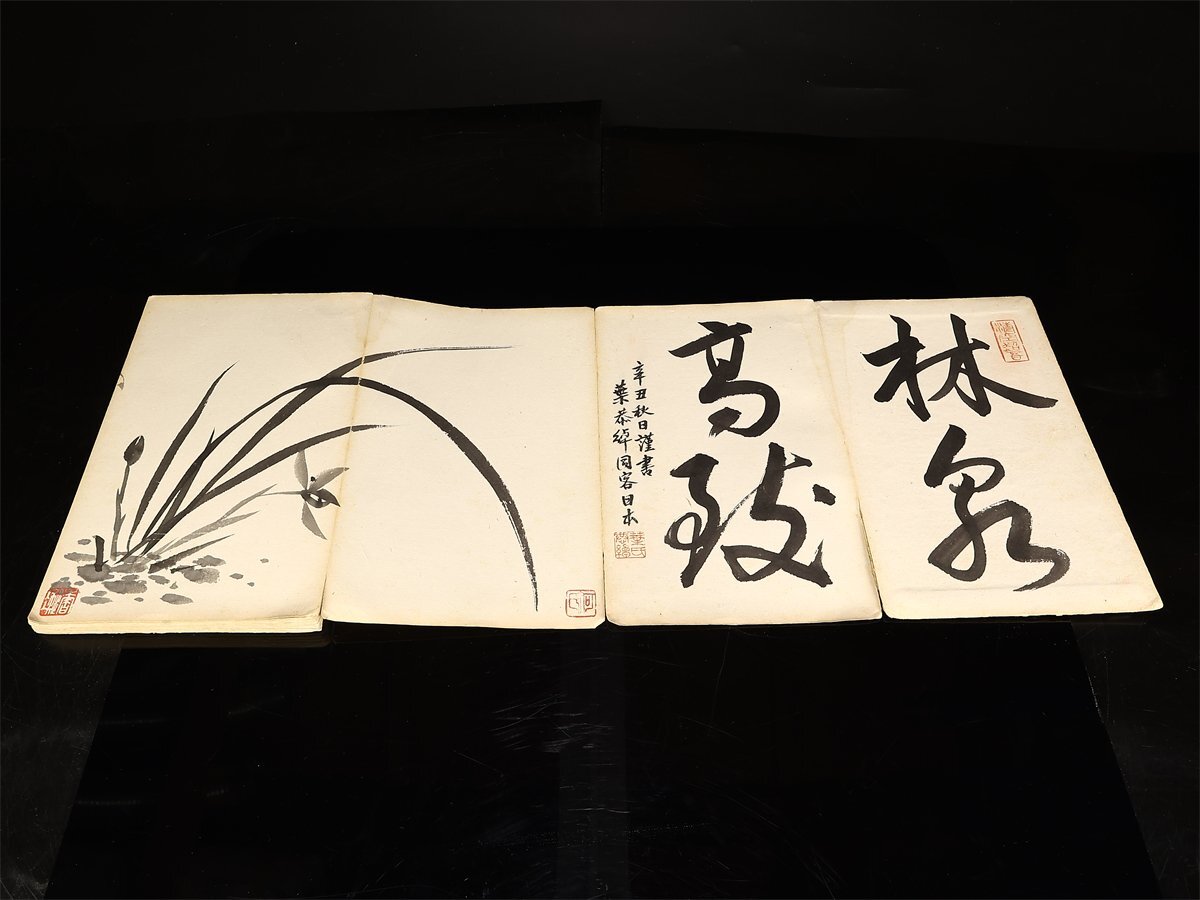 林泉
高致
辛丑秋日謹書
葉恭綽同客日本